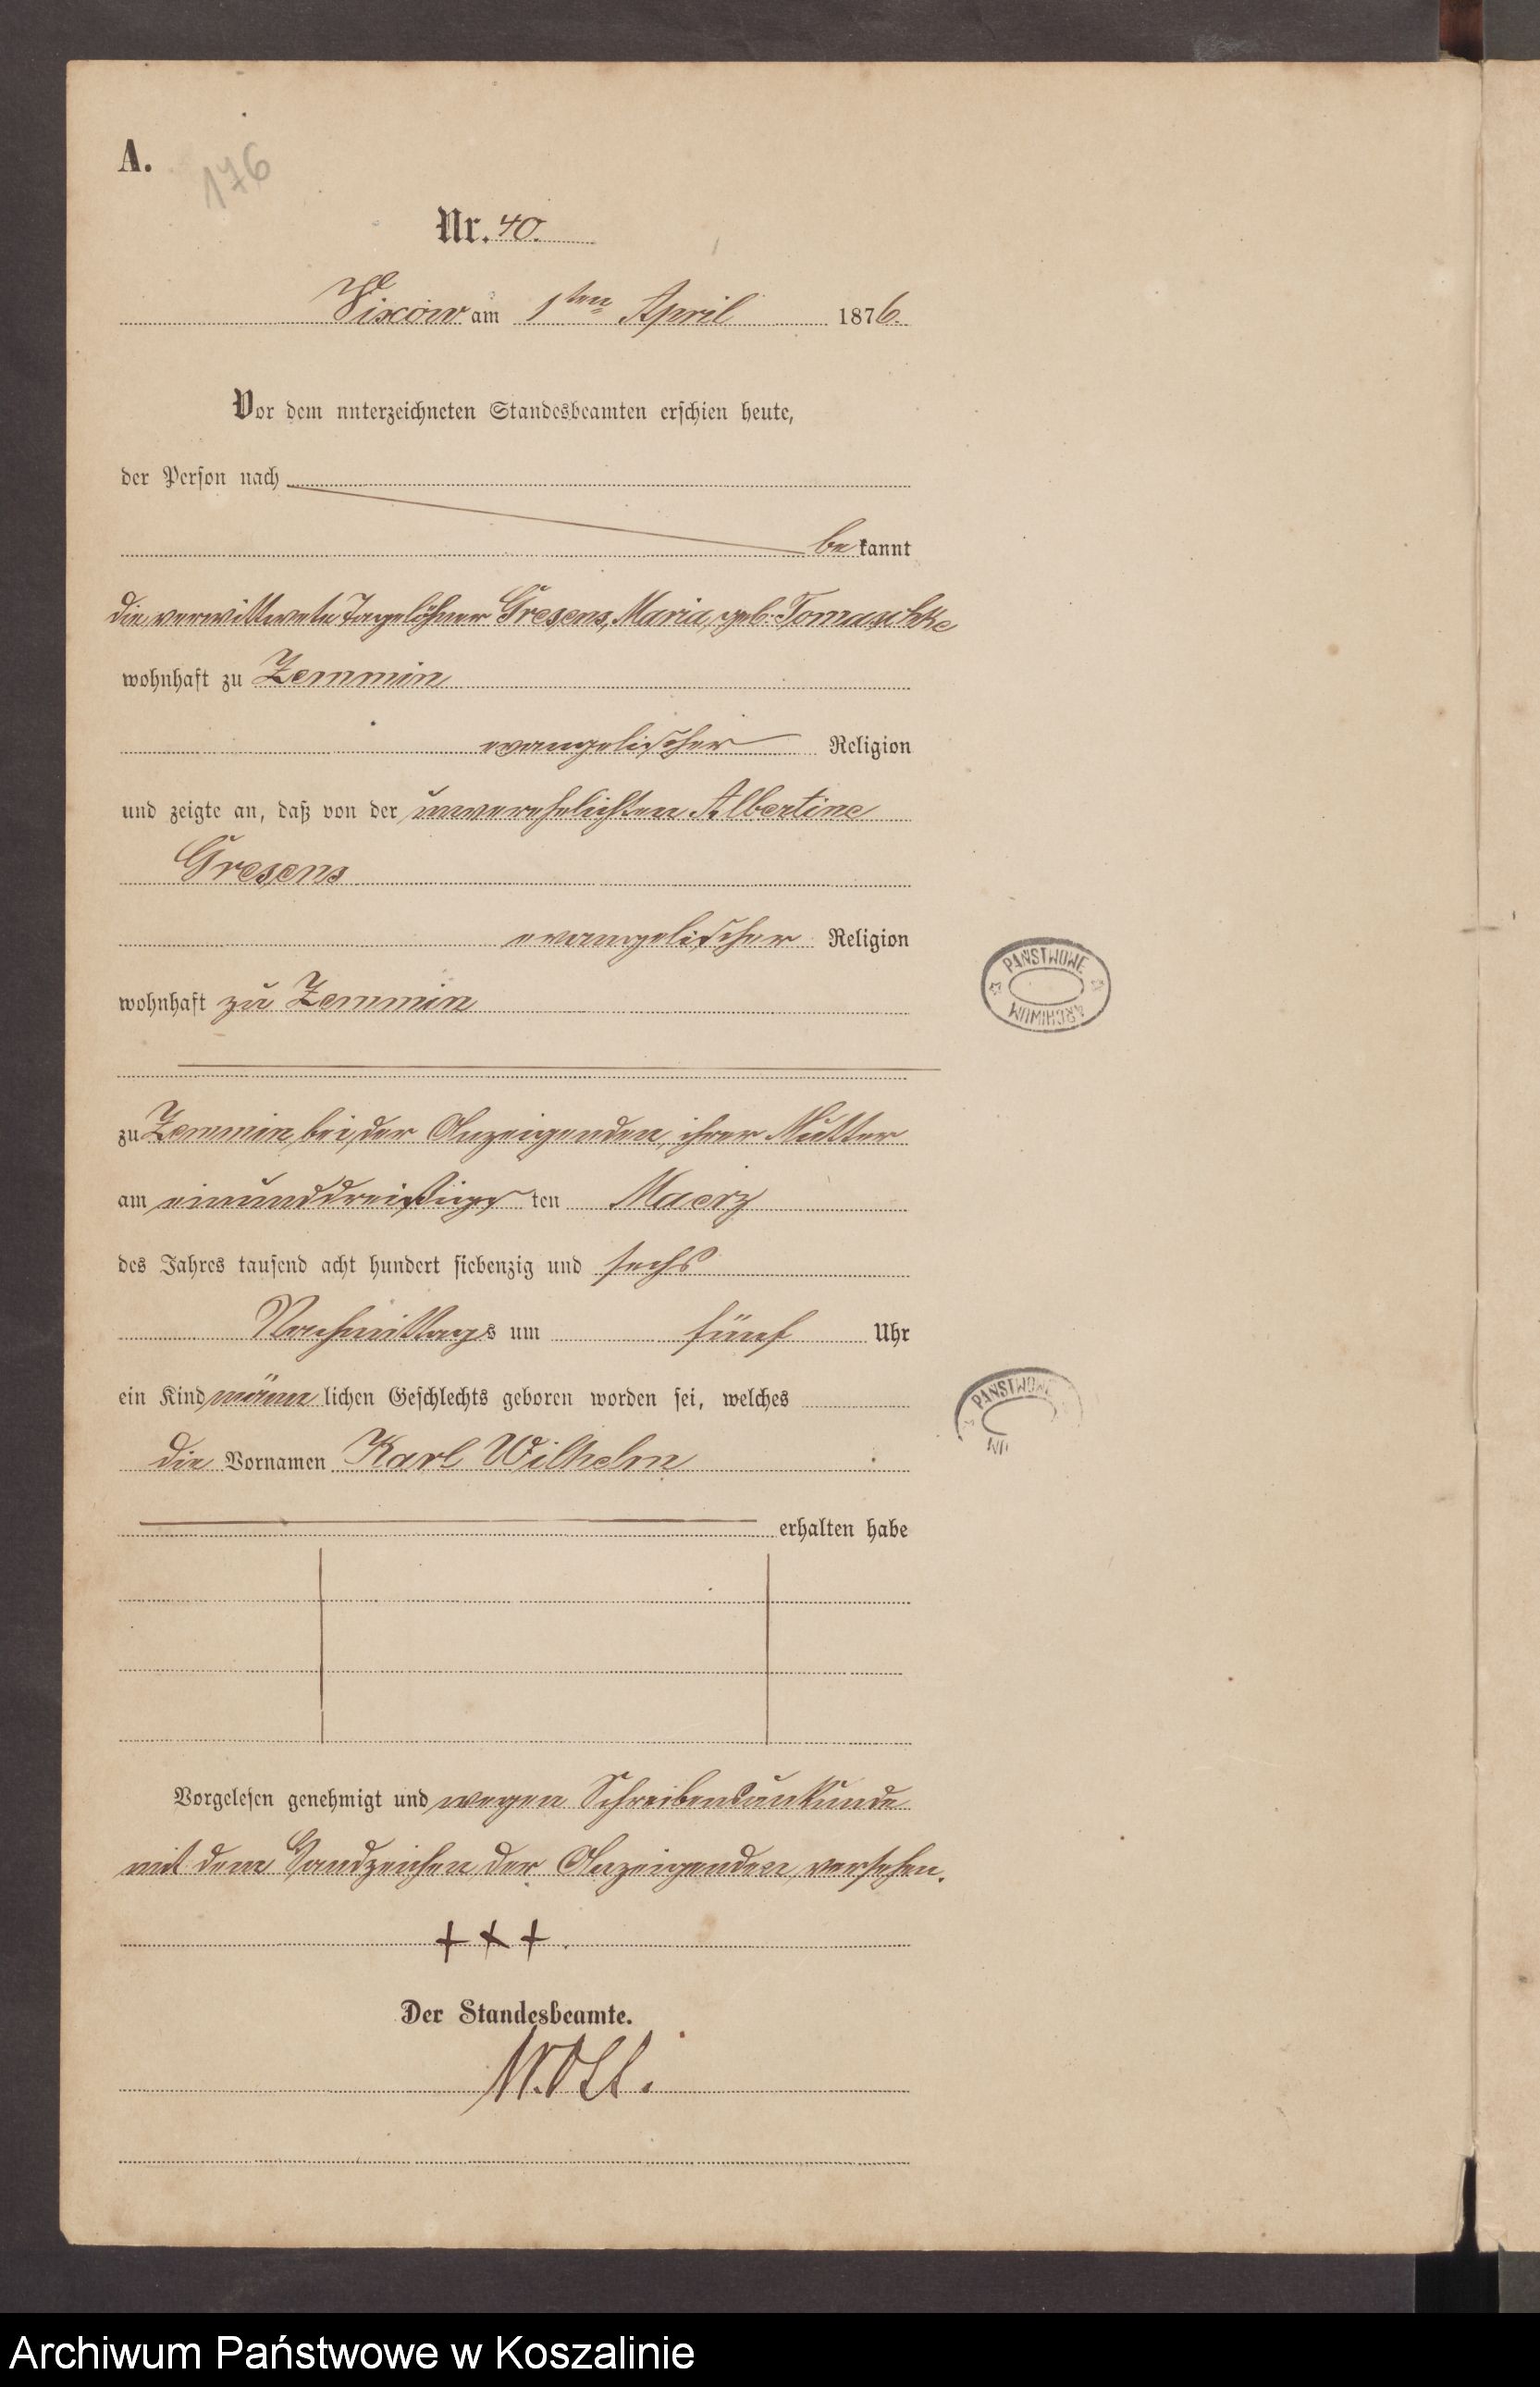 A.
176
Nr. 40.
Vixow am 1ten April 1876.
Vor dem unterzeichneten Standesbeamten erschien heute,
der Person nach
bekannt
die verwittwete Tagelöhner Gresens, Maria, geb. Tomaschke
wohnhaft zu Zemmin
evangelischer Religion
und zeigte an, daß von der unverehelichten Albertine
Gresens
evangelischer Religion
wohnhaft zu Zemmin
zu Zemmin bei der Anzeigenden, ihrer Mutter
am einunddreißigsten Maerz
des Jahres tausend acht hundert siebenzig und sechs
Nachmittags um fünf Uhr
ein Kind männlichen Geschlechts geboren worden sei, welches
die Vornamen Karl Wilhelm
erhalten habe
Vorgelesen genehmigt und wegen Schreibensunkunde
mit dem Handzeichen der Anzeigenden versehen.
+++.
Der Standesbeamte.
PAŃSTWOWE ARCHIWUM
PAŃSTWOWE
Archiwum Państwowe w Koszalinie